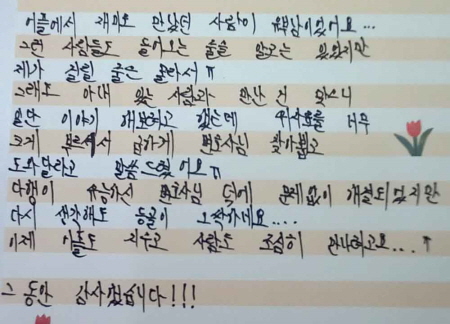 어플에서 재미로 만났던 사람이 유부남이었어요...
그런 사람들도 들어오는 줄을 알고는 있었지만
제가 걸릴 줄은 몰라서 ㅠ
그래도 아내 있는 사람과 만난 건 맞으니
일단 이야기 해보려고 했는데 위자료를 너무
크게 부르셔서 급하게 변호사님 찾아뵙고
도와달라고 말씀드렸어요 ㅠ
다행이 유능하신 변호사님 덕에 문제없이 해결되었지만
다시 생각해도 등골이 오싹하네요....
이제 어플도 지우고 사람도 조심히 만나려고요...
그동안 감사했습니다!!!